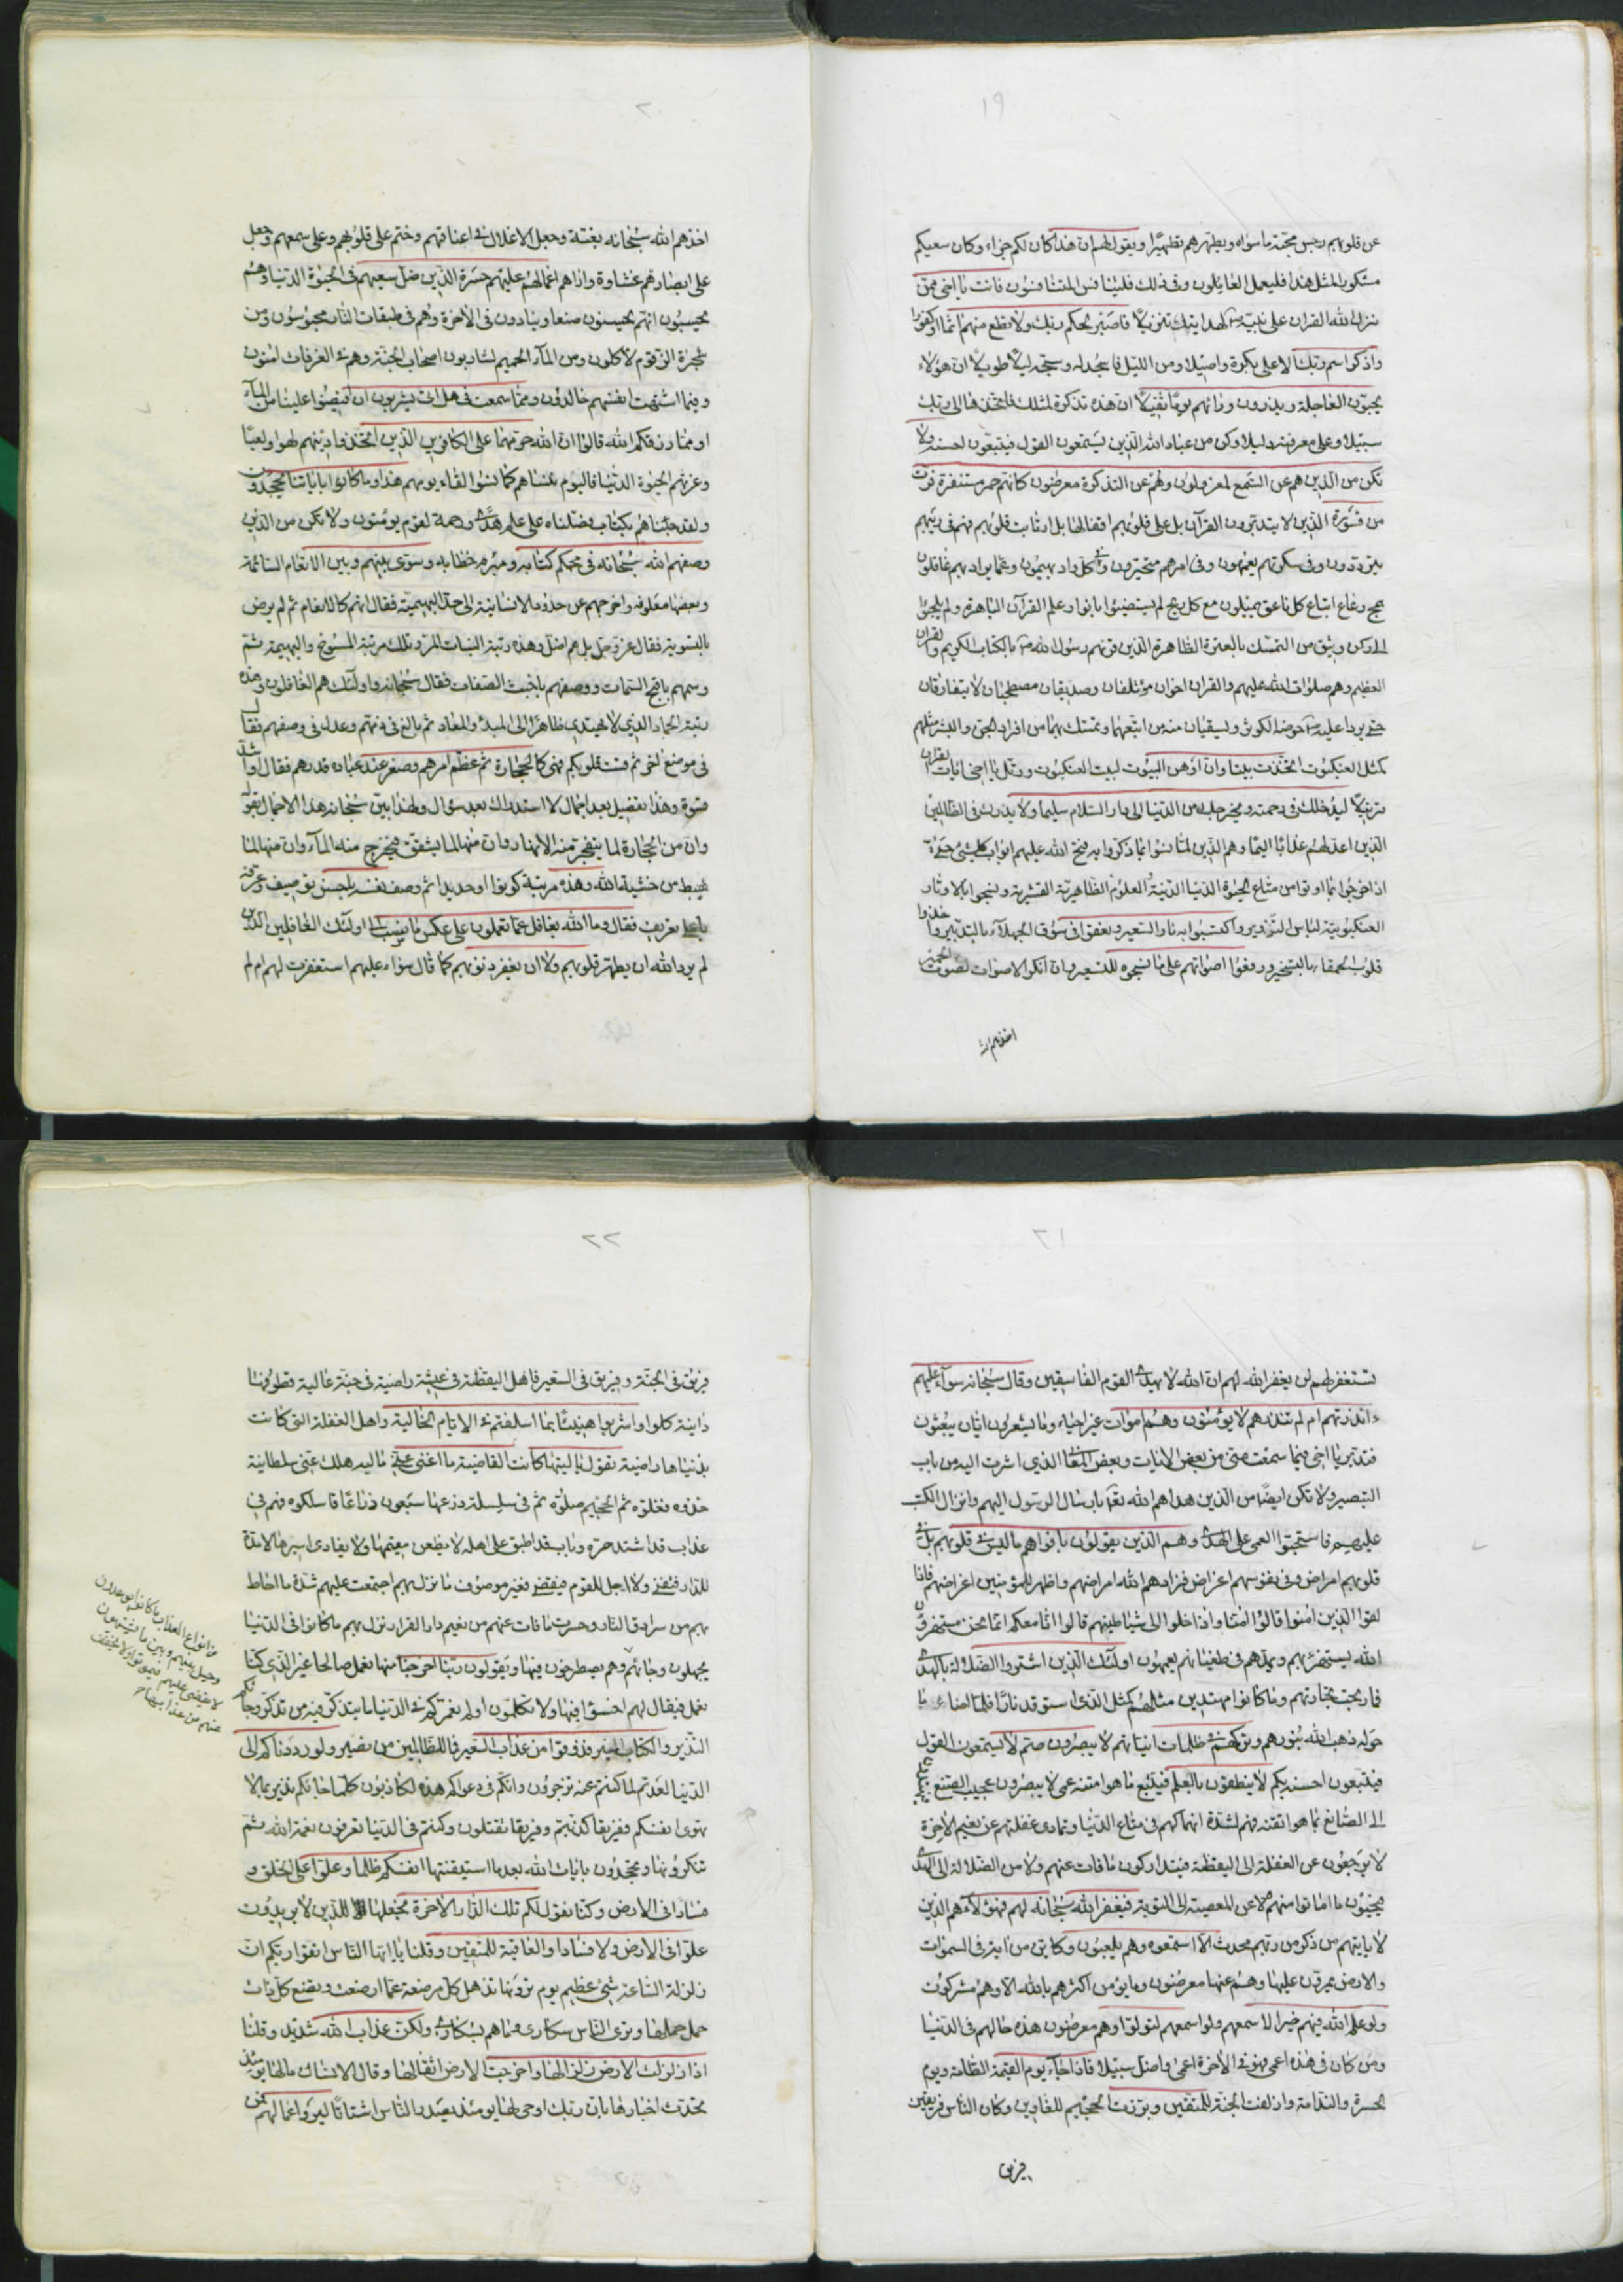 ١٩
عن قلوبهم رجس محبّة ما سواه ويطهّرهم تطهيرًا ويقول لهم ان هذا كان لكم جزاء وكان سعيكم
مشكورا لمثل هذا فليعمل العاملون وفى ذلك فليتنافس المتنافسون فانت يا اخى ممّن
نزل الله القران على نبيّه لهدايتك تنزيلًا فاصبر لحكم ربك ولا تطع منهم اثما او كفورا
واذكر اسم ربك الاعلى بكرة واصيلا ومن الليل فاسجد له وسبّحه ليلًا طويلًا انّ هؤلاء
يحبّون العاجلة ويذرون ورائهم يومًا ثقيلًا انّ هذه تذكرة لمثلك فاتخذها الى ربك
سبيلا وعلى معرفته دليلا وكن من عباد الله الذين يستمعون القول فيتبعون احسنه ولا
تكن من الذين هم عن السّمع لمعزولون وهم عن التذكرة معرضون كانهم حمر مستنفرة فرّت
من قسورة الذين لا يتدبّرون القرآن بل على قلوبهم اقفالها بل ارتابت قلوبهم فهم فى ريبهم
يتردّدون وفى سكرتهم يعمهون وفى امرهم متحيّرون وفى كلّ واد يهيمون وعمّا يراد بهم غافلون
همج رعاع اتباع كل ناعق يميلون مع كل ريح لم يستضيئوا بانوار علم القرآن الباهرة ولم يلجئوا
الى ركن وثيق من التمسّك بالعترة الطّاهرة الذين قرنهم رسول الله بالكتاب الكريم والقران
العظيم وهم صلوات الله عليهم والقران اخوان مؤتلفان وصديقان مصطحبان لا يتفارقان
حتى يردا عليه حوضه الكوثر ويسقيان منه من اتبعهما وتمسّك بهما من افراد الجنّ والبشر مثلهم
كمثل العنكبوت اتخذت بيتا وانّ اوهن البيوت لبيت العنكبوت ورتل يا اخى ايات القران
ترتيلًا ليدخلك فى رحمته ويخرجك من الدنيا الى دار السّلام سليما ولا يذرك فى الظالمين
الذين اعدّ لهم عذابًا اليمًا وهم الذين لمّا نسوا ما ذكّروا به فتح الله عليهم ابواب كل شئ حتى
اذا فرحوا بما اوتوا من متاع الحيوة الدّنيا الدّنيّة والعلوم الظاهريّة القشرية ونسجوا بالاوتار
العنكبوتيّة لباس التّزوير واكتسبوا به نار السّعير وبعقوا فى سوق الجهلاء بالتدبير واخذوا
قلوب الحمقاء بالتسخير ورفعوا اصواتهم على ما نسجوه للتسعير وانّ انكر الاصوات لصوت الحمير
اخذهم الله
٢٠
اخذهم الله سبحانه بغتة وجعل الاغلال فى اعناقهم وختم على قلوبهم وعلى سمعهم وجعل
على ابصارهم غشاوة واراهم اعمالهم عليهم حسرة الذين ضلّ سعيهم فى الحيوة الدّنيا وهم
يحسبون انهم يحسنون صنعا وينادون فى الاخرة وهم فى طبقات النّار محبوسون ومن
شجرة الزّقوم لاكلون ومن المآء الحميم لشاربون اصحاب الجنّة وهم فى الغرفات امنون
وفيما اشتهت انفسهم خالدون وممّا سمعت فى هل اتى يشربون ان افيضوا علينا من المآء
او ممّا رزقكم الله قالوا انّ الله حرّمهما على الكافرين الذين اتخذوا دينهم لهوا ولعبًا
وغرّتهم الحيوة الدنيا فاليوم ننساهم كما نسوا لقاء يومهم هذا وما كانوا باياتنا يجحدون
ولقد جئناهم بكتاب فصّلناه على علم هدًى ورحمة لقوم يؤمنون ولا تكن من الذين
وصفهم الله سبحانه فى محكم كتابه ومبرم خطابه وسوّى بينهم وبين الانعام السّائمة
وبعضها معلوفة واخرجهم عن حدود الانسانية الى حدّ البهيميّة فقال انهم كالانعام ثم لم يرض
بالتسوية فقال عزّ وجلّ بل هم اضلّ وهذه رتبة النبات المرّ وتلك مرتبة المسوخ والبهيمة ثمّ
وسمهم باقبح السّمات ووصفهم باخبث الصّفات فقال سبحانه واولئك هم الغافلون وهذه
رتبة الجماد الذى لا يهتدى ظاهرًا الى المبدء والمعاد ثم بالغ فى ذمّهم وعدله فى وصفهم فقال
فى موضع اخر ثم قست قلوبكم فهى كالحجارة ثم عظّم امرهم وصغر عند عباده قدرهم فقال او اشدّ
قسوة وهذا تفضيل بعد اجمال لا استدراك بعد سؤال ولهذا بيّن سبحانه هذا الاجمال بقوله
وان من الحجارة لما يتفجّر منه الانهار وان منها لما يشقق فيخرج منه المآء وان منها لما
يهبط من خشية الله وهذه مرتبة كونوا او حديدا ثم وصف نفسه باحسن توصيف وعرّفه
باعلى تعريف فقال وما الله بغافل عمّا تعملون على عكس ما نسب الى اولئك الغافلين الذين
لم يرد الله ان يطهّر قلوبهم ولا ان يغفر ذنوبهم كما قال سواء عليهم استغفرت لهم ام لم
٢١
تستغفر لهم لن يغفر الله لهم ان الله لا يهدى القوم الفاسقين وقال سبحانه سوآء عليهم
ءانذرتهم ام لم تنذرهم لا يؤمنون وهم اموات غير احياء وما يشعرون ايّان يبعثون
فتدبّر يا اخى فيما سمعت منّى من بعض الايات وبعض المعانى الذى اشرت اليه من باب
التبصير ولا تكن ايضًا من الذين هداهم الله تعالى بارسال الرسول اليهم وانزال الكتب
عليهم فاستحبّوا العمى على الهدى وهم الذين يقولون بافواههم ما ليس فى قلوبهم بل فى
قلوبهم امراض وفى نفوسهم اغراض فزادهم الله امراضهم واظهر للمؤمنين اغراضهم فاذا
لقوا الذين امنوا قالوا امنّا واذا خلوا الى شياطينهم قالوا انّا معكم انّما نحن مستهزؤن
الله يستهزئ بهم ويمدّهم فى طغيانهم يعمهون اولئك الذين اشتروا الضلالة بالهدى
فما ربحت تجارتهم وما كانوا مهتدين مثلهم كمثل الذى استوقد نارًا فلمّا اضاءت ما
حوله ذهب الله بنورهم وتركهم فى ظلمات انّيّاتهم لا يبصرون صمّ لا يسمعون القول
فيتبعون احسنه بكم لا ينطقون بالعلم فيتّبع ما هو امتنه عمى لا يبصرون عجيب الصّنع
الى الصّانع بما هو اتقنه فهم لشدّة انهماكهم فى متاع الدّنيا وتمادى غفلتهم عن نعيم الاخرة
لا يرجعون عن الغفلة الى اليقظة فيتداركون ما فات عنهم ولا من الضّلالة الى الهدى
فيحيون ما اماتوا منهم ولا عن المعصية الى التوبة فيغفر الله سبحانه لهم فهؤلاء هم الذين
لا ياتيهم من ذكر من ربّهم محدث الّا استمعوه وهم يلعبون وكايّن من اية فى السّموات
والارض يمرّون عليها وهم عنها معرضون وما يؤمن اكثرهم بالله الّا وهم مشركون
ولو علم الله فيهم خيرا لاسمعهم ولو اسمعهم لتولّوا وهم معرضون هذه حالهم فى الدّنيا
ومن كان فى هذه اعمى فهو فى الاخرة اعمى واضلّ سبيلا فاذا جآء يوم القيمة الطّامّة ويوم
الحسرة والنّدامة وازلفت الجنّة للمتّقين وبرّزت الجحيم للغاوين وكان النّاس فريقين
فريق
٢٢
فريق فى الجنّة وفريق فى السّعير فاهل اليقظة فى عيشة راضية فى جنّة عالية قطوفها
دانية كلوا واشربوا هنيئًا بما اسلفتم فى الايّام الخالية واهل الغفلة التى كانت
بدنياها راضية تقول يا ليتها كانت القاضية ما اغنى عنى ماليه هلك عنّى سلطانية
خذوه فغلّوه ثم الجحيم صلّوه ثم فى سلسلة ذرعها سبعون ذراعًا فاسلكوه فهم فى
عذاب قد اشتد حرّه وباب قد اطبق على اهله لا يظعن مقيمها ولا يفادى اسيرها لا مدّة
للدّار فتفنى ولا اجل للقوم فيقضى فغير موصوف ما نزل بهم اجتمعت عليهم شدّة ما احاط
بهم من سرادق النّار وحسرت ما فات عنهم من نعيم دار القرار نزل بهم ما كانوا فى الدّنيا
يجهلون وجائهم وهم يصطرخون فيها ويقولون ربّنا اخرجنا منها نعمل صالحا غير الذى كنّا
نعمل فيقال لهم اخسؤا فيها ولا تكلمون اولم نعمّركم فى الدّنيا ما يتذكّر فيه من تذكّر وجائكم
النّذير والكتاب المنير فذوقوا من عذاب السّعير فما للظّالمين من نصير ولو رددناكم الى
الدّنيا لعدتم لما كنتم عنه تزجرون وانّكم فى دعواكم هذه لكاذبون كلّما جائكم نذير بما لا
تهوى انفسكم ففريقا كذّبتم وفريقا تقتلون وكنتم فى الدّنيا تعرفون نعمة الله ثمّ
تنكرونها وتجحدون بايات الله بعد ما استيقنتها انفسكم ظلما وعلوّا على الخلق و
فسادا فى الارض وكنّا نقول لكم تلك الدّار الاخرة نجعلها للذين لا يريدون
علوّا فى الارض ولا فسادا والعاقبة للمتقين وقلنا يا ايّها النّاس اتّقوا ربّكم انّ
زلزلة السّاعة شئ عظيم يوم ترونها تذهل كلّ مرضعة عمّا ارضعت وتضع كلّ ذات
حمل حملها وترى النّاس سكارى وما هم بسكارى ولكن عذاب الله شديد وقلنا
اذا زلزلت الارض زلزالها واخرجت الارض اثقالها وقال الانسان مالها يومئذ
تحدّث اخبارها بانّ ربّك اوحى لها يومئذ يصدر النّاس اشتاتًا ليروا اعمالهم فمن
من انواع العذاب ما كانوا يوعدون
وحيل بينهم وبين ما يشتهون
لا يقضى عليهم فيموتوا ولا يخفّف
عنهم من عذابها